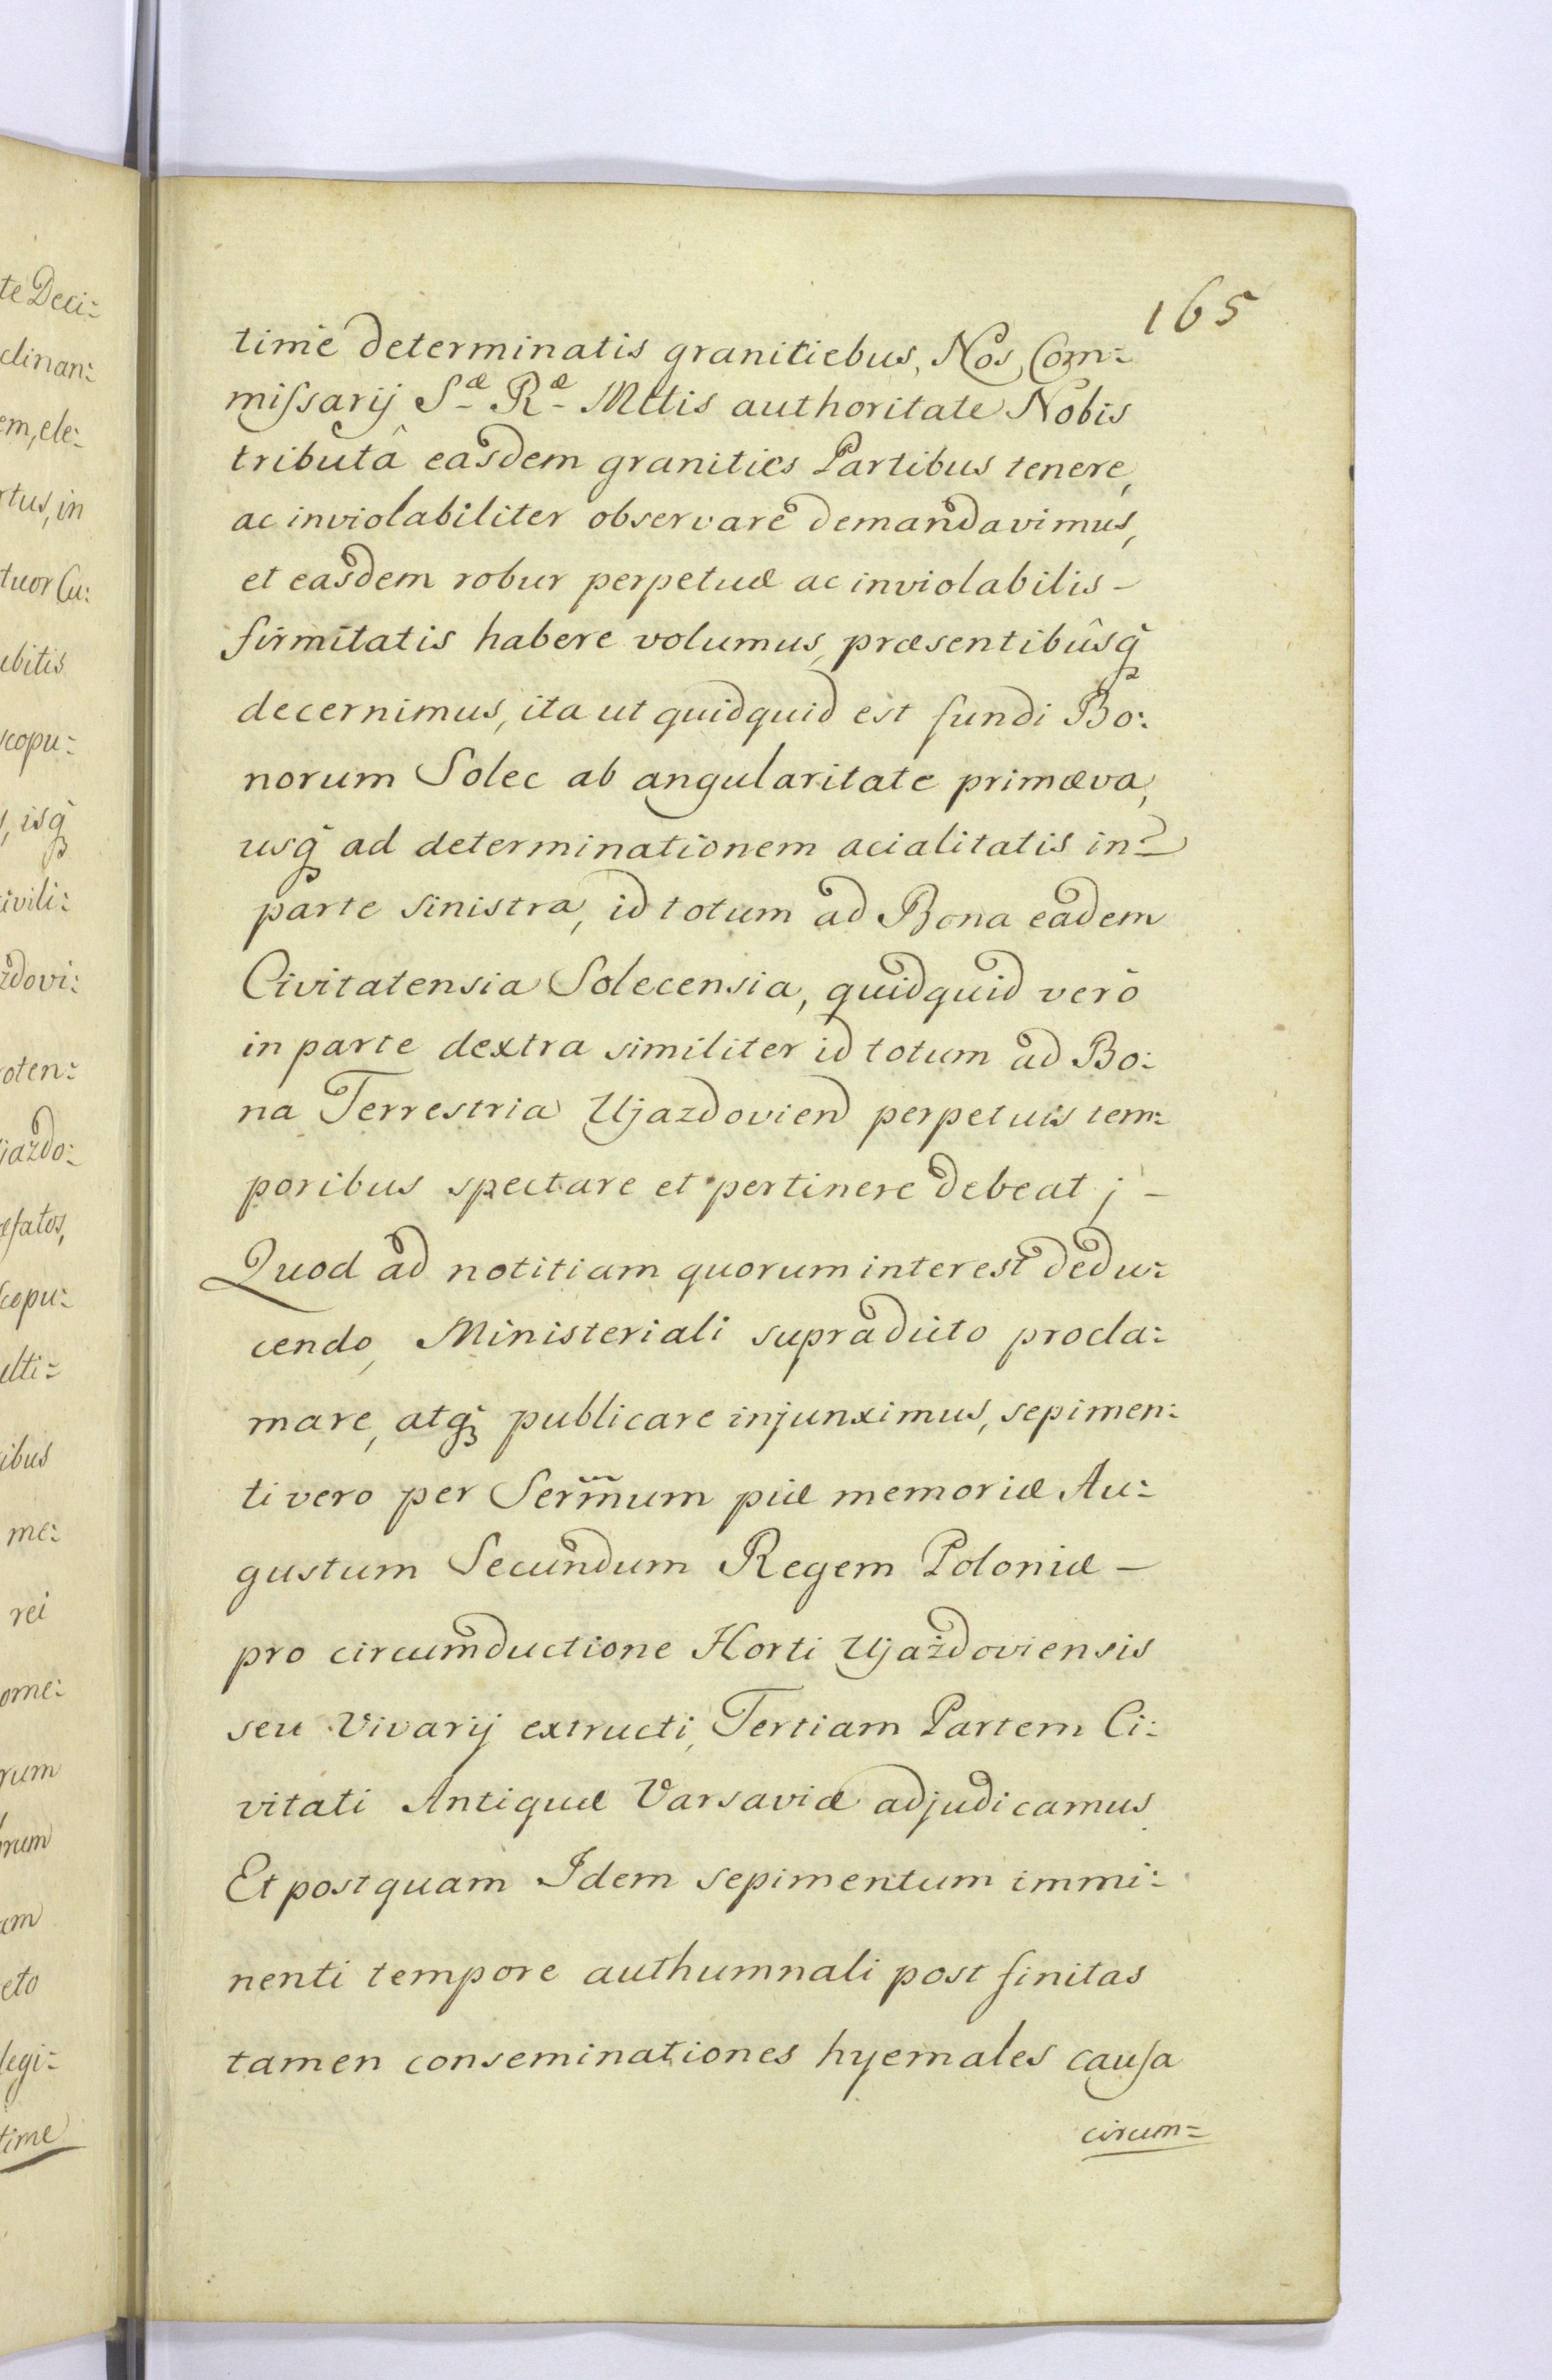 165
time determinatis granitiebus, Nos Com:
miſsarij S.æ R.æ Mttis authoritate Nobis
tributâ easdem granities Partibus tenere,
ac inviolabiliter observare demandavimus,
et easdem robur perpetuæ ac inviolabilis –
firmitatis habere volumus, præsentibusq
decernimus, ita ut quidquid est fundi Bo:
norum Solec ab angularitate primæva,
usq ad determinationem acialitatis in
parte sinistra, id totum ad Bona eadem
Civitatensia Solecensia, quidquid verò
in parte dextra similiter id totum ad Bo:
na Terrestria Ujazdovien perpetuis tem:
poribus spectare et pertinere debeat; –
Quod ad notitiam quorum interest dedu:
cendo, Ministeriali supradicto procla:
mare, atq publicare injunximus, sepimen:
ti vero per Serm̃um piæ memoriæ Au:
gustum Secundum Regem Poloniæ –
pro circumductione Horti Ujażdoviensis
seu Vivarij extructi, Tertiam Partem Ci:
vitati Antiquæ Varsaviæ adjudicamus.
Et postquam Idem sepimentum immi:
nenti tempore authumnali post finitas
tamen conseminationes hyemales cauſa
circum=
te Deci:
clinan:
em, ele:
rtus, in
tuor Cu:
ebitis
scopu:
, isq
ivili:
zdovi:
oten:
jazdo:
æfatos,
scopu:
ulti:
ibus
me:
rei
ome:
rum
rum
um
eto
legi:
time